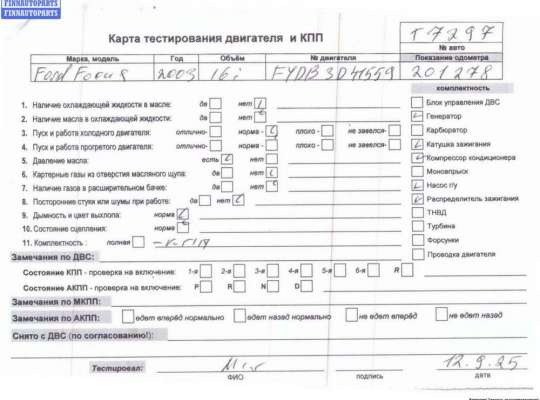 FINNAUTOPARTS
FINNAUTOPARTS
Карта тестирования двигателя и КПП
T7297
№ авто
Марка, модель Год Объём № двигателя Показание одометра
Ford Focus 2003 16i FYDB3D41559 201278
комплектность
1. Наличие охлаждающей жидкости в масле: да нет
2. Наличие масла в охлаждающей жидкости: да нет
3. Пуск и работа холодного двигателя: отлично- норма - плохо - не завелся-
4. Пуск и работа прогретого двигателя: отлично- норма - плохо - не завелся-
5. Давление масла: есть нет
6. Картерные газы из отверстия масляного щупа: да нет
7. Наличие газов в расширительном бачке: да нет
8. Посторонние стуки или шумы при работе: да нет
9. Дымность и цвет выхлопа: норма
10. Состояние сцепления: норма
11. Комплектность : полная
Блок управления ДВС
Генератор
Карбюратор
Катушка зажигания
Компрессор кондиционера
Моновпрыск
Насос г/у
Распределитель зажигания
ТНВД
Турбина
Форсунки
Проводка двигателя
Замечания по ДВС:
Состояние КПП - проверка на включение: 1-я 2-я 3-я 4-я 5-я 6-я R
Состояние АКПП - проверка на включение: P R N D
Замечания по МКПП:
Замечания по АКПП: едет вперёд нормально едет назад нормально не едет вперёд не едет назад
Снято с ДВС (по согласованию!):
Тестировал: 12.9.25
ФИО подпись дата